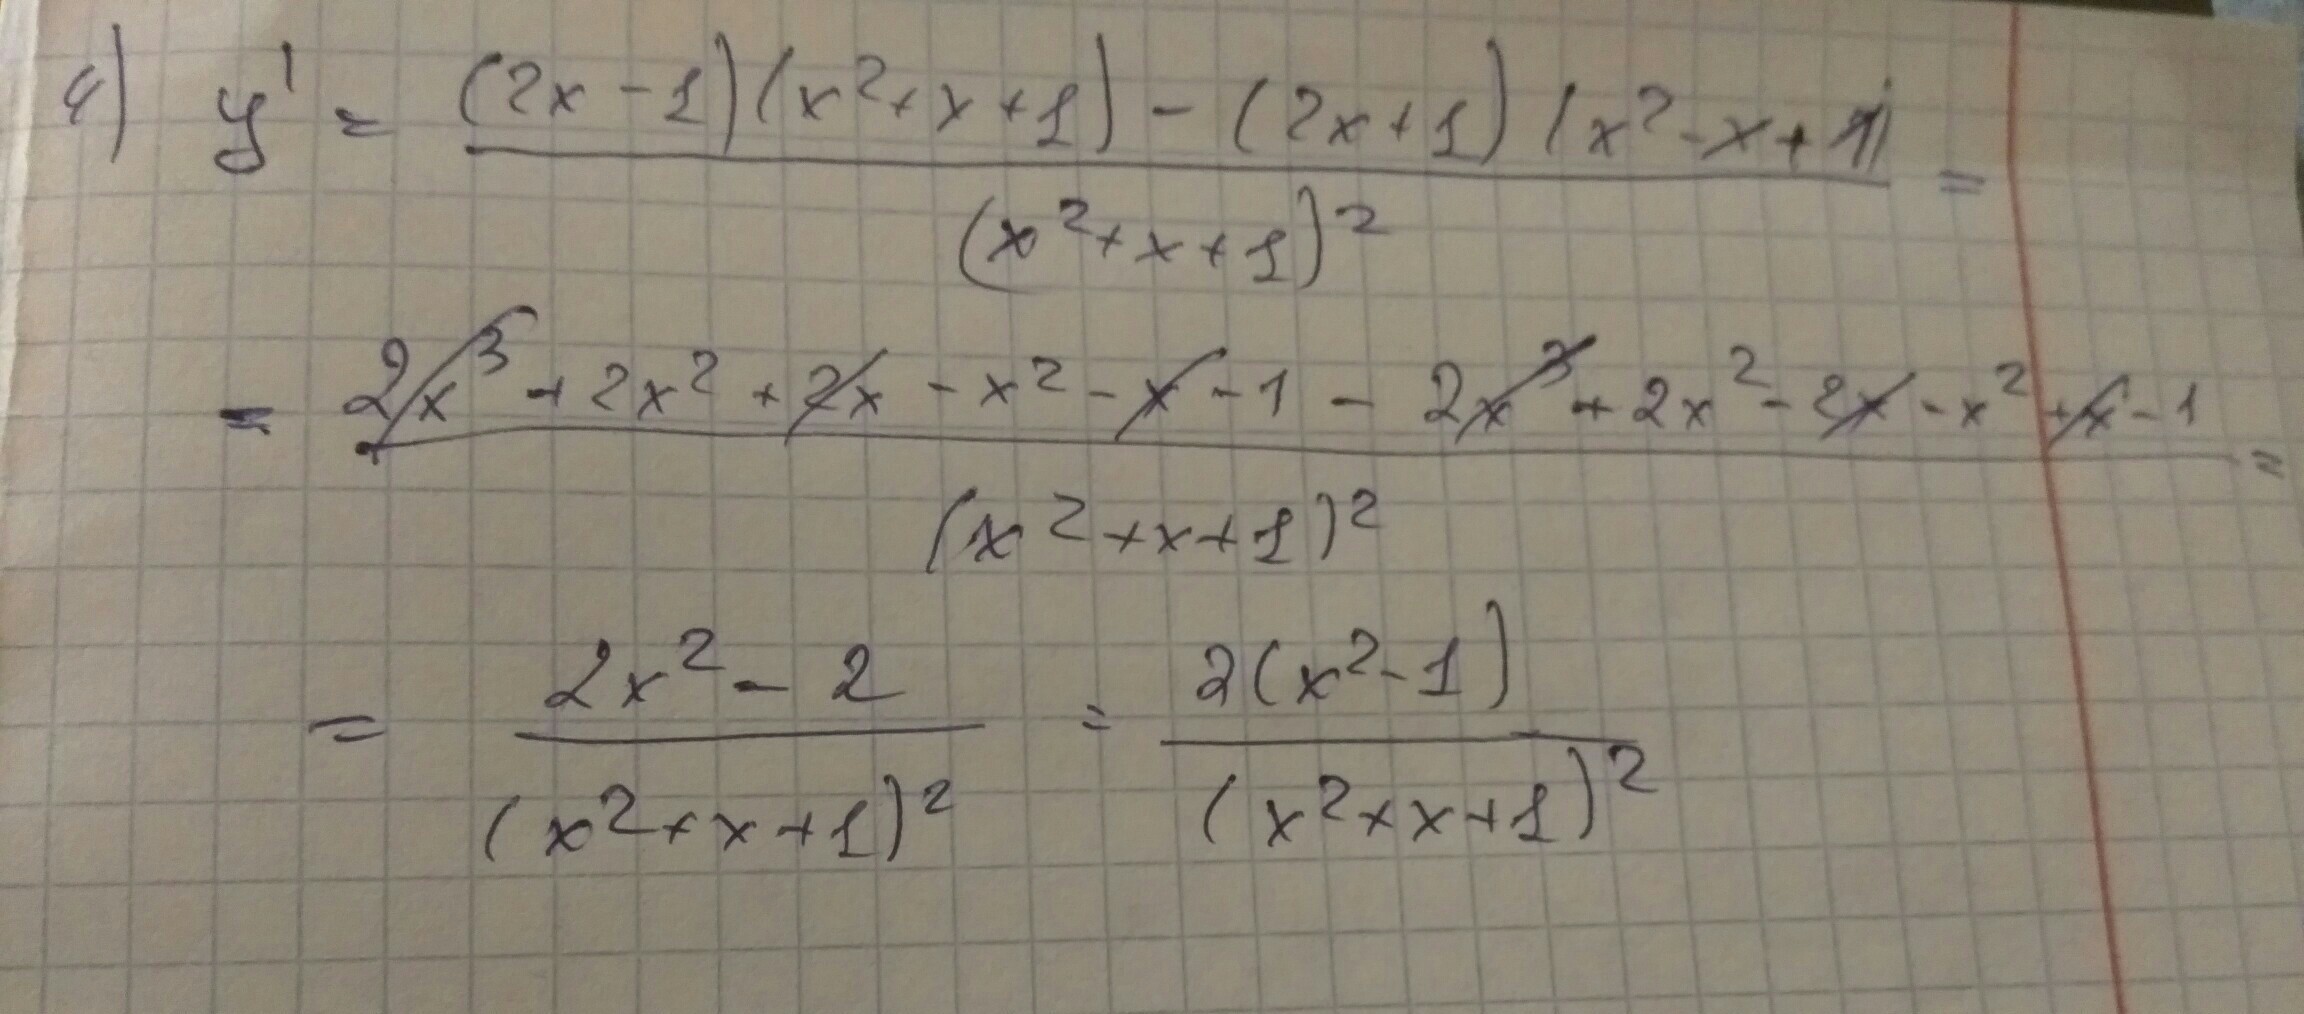 4) y' = ((2x-1)(x²+x+1) - (2x+1)(x²-x+1))/(x²+x+1)² =
= (2x³+2x²+2x-x²-x-1-2x³+2x²-2x-x²+x-1)/(x²+x+1)² =
= (2x²-2)/(x²+x+1)² = 2(x²-1)/(x²+x+1)²